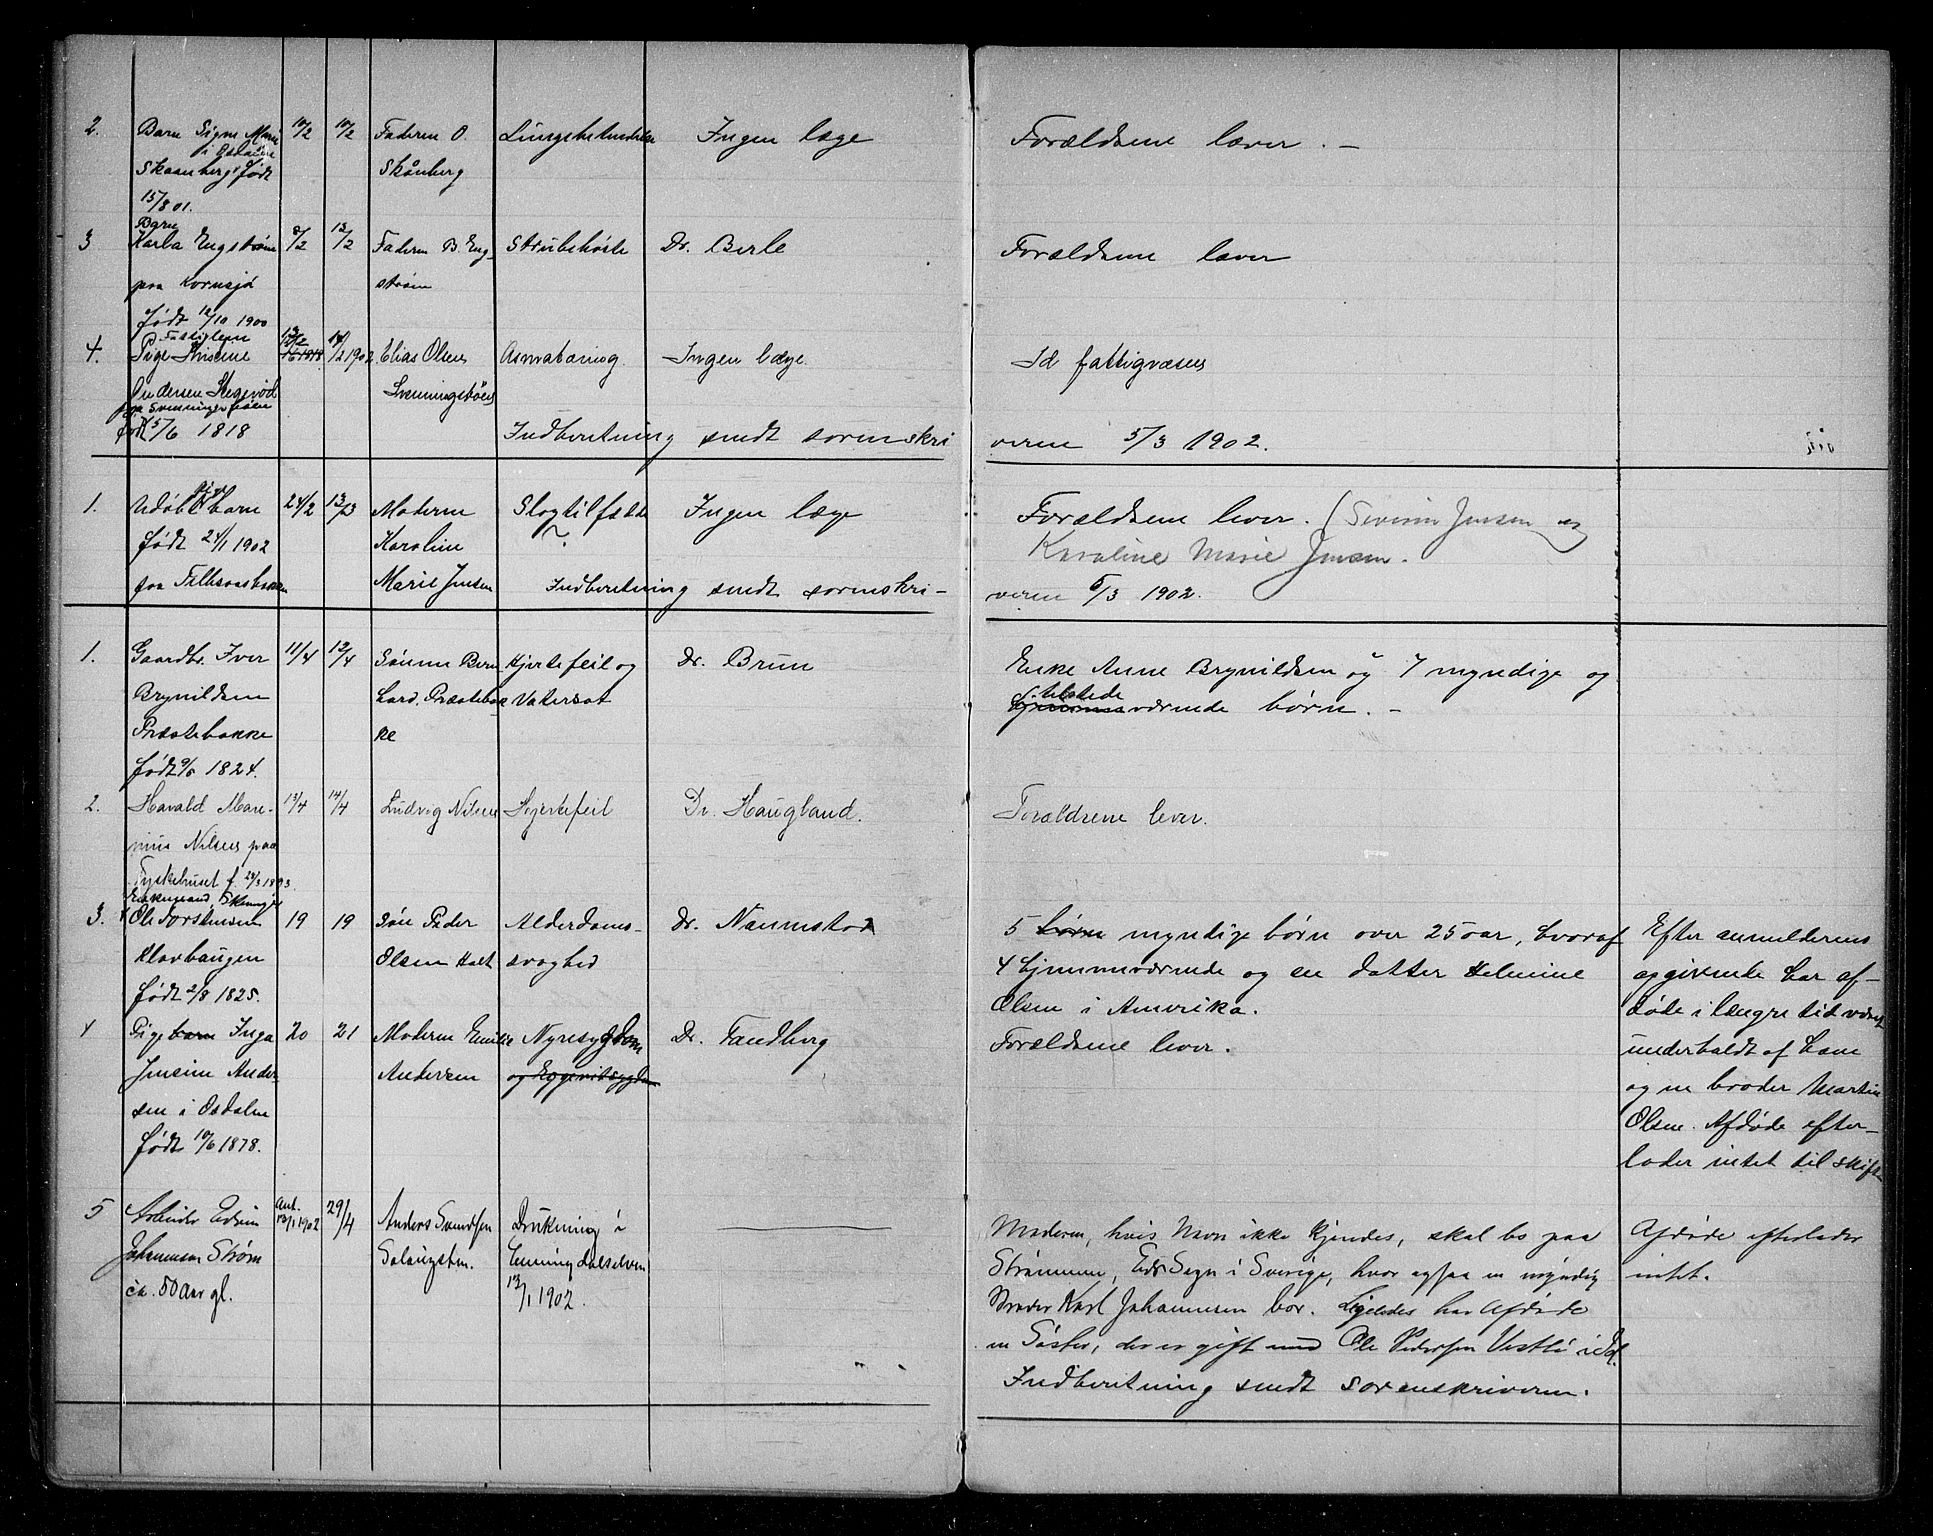 2. Barn Signe Marie 10/2 10/2 Faderen O. Lungebetændelse Ingen læge Forældrene lever. –
i Osdalen
Skaanberg født Skånberg
15/8 01.
Barn
3 Karla Engstrøm 8/2 12/2 Faderen B. Eng- Strubehoste Dr. Berle Forældrene lever
paa Kornsjø strøm
født 12/10 1900
Fattiglem
4. Pige 14/2 1902 Elias Olsen Ingen læge. Id fattigvæsen
Andersen
født 5/6 1818 Indberetning sendt sorenskri veren 5/3 1902.
pige
1. Udøbt barn 24/2 13/3 Moderen Slagtilfælde Ingen læge Forældrene lever. (Severin Jensen og
født 24/1 1902 Karoline ? Karoline Marie Jensen.
paa Marie Jensen Indberetning sendt sorenskri- veren 6/3 1902.
1. Gaardbr. Iver 11/4 12/4 Sønnen Bern Hjertefeil og Dr. Brun Enke Anne Brynildsen og 7 myndige og
Brynildsen hard. Præsteba Vatersot tilstede
Præstebakke ke hjemmeværende børn. –
født 9/5 1824.
2. Harald Mare- 13/4 14/4 Ludvig Nilsen Hjertefeil Dr. Haugland. Forældrene lever.
nius Nilsen paa
Tyskehuset f. 24/3 1893.
Enkemand
3. Ole Torstensen 19 19 Søn Peder Alderdoms- Dr. 5 børn myndige børn over 25 aar, hvoraf Efter anmelderens
Klovhaugen Olsen Holt svaghed 4 hjemmeværende og en datter Helmine opgivende har af-
født 2/8 1825. Olsen i Amerika. døde i længre tid været
4 Pigebarn Inga 20 21 Moderen Emilie Nyresygdom Dr. Tandberg Forældrene lever. underholdt af ham
Jensine Ander- Andersen og og en broder Martin
sen i Osdalen Olsen. Afdøde efter-
født 10/6 1878. lader intet til skifte
5 Arbeider Edvin Ant. 13/1 1902 29/4 Anders Svendsen Drukning i Moderen, hvis Navn ikke kjendes, skal bo paa Afdøde efterlader
Johannesen Strøm Enningdalselven Strømmen, Eds Sogn i Sverige, hvor ogsaa en myndig intet.
ca. 50 Aar gl. 13/1 1902. Broder Karl Johannesen bor. Ligeledes har Afdøde
en Søster, der er gift med Ole Pedersen Vestli i Id.
Indberetning sendt sorenskriveren.